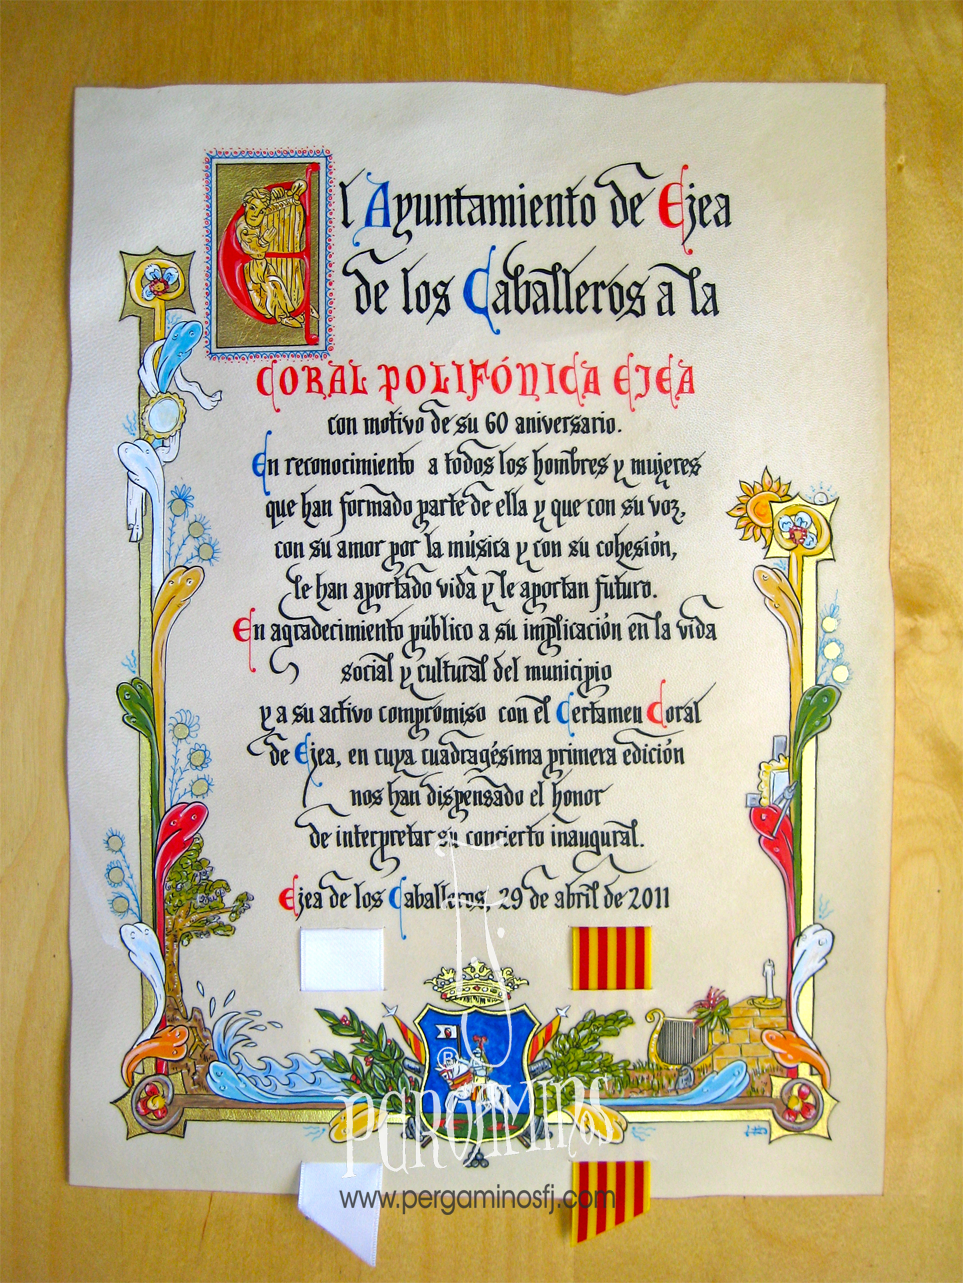 El Ayuntamiento de Ejea
de los Caballeros a la
CORAL POLIFÓNICA EJEA
con motivo de su 60 aniversario.
En reconocimiento a todos los hombres y mujeres
que han formado parte de ella y que con su voz,
con su amor por la música y con su cohesión,
le han aportado vida y le aportan futuro.
En agradecimiento público a su implicación en la vida
social y cultural del municipio
y a su activo compromiso con el Certamen Coral
de Ejea, en cuya cuadragésima primera edición
nos han dispensado el honor
de interpretar su concierto inaugural.
Ejea de los Caballeros, 29 de abril de 2011
®
PERGAMINOS
www.pergaminosfj.com